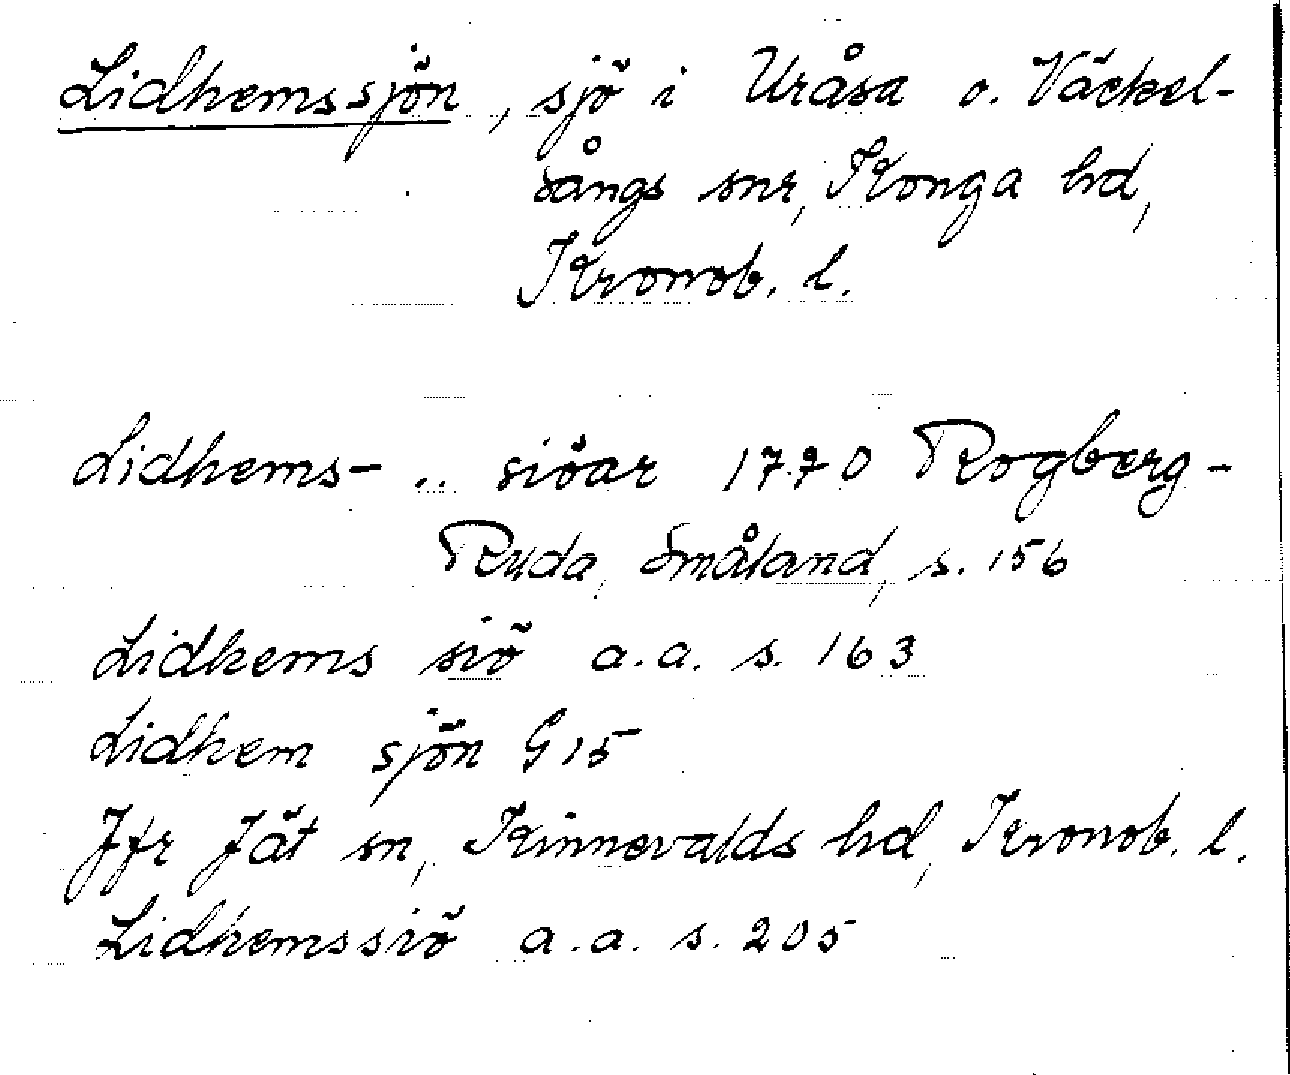 Lidhemssjön, sjö i Uråsa o. Väckel-
sångs snr, Konga hd,
Kronob. l.
Lidhems- .. siöar 1770 Rogberg-
Ruda, Småland, s. 156
Lidhems siö a.a. s. 163
Lidhem sjön G 15
Jfr Jät sn, Kinnevalds hd, Kronob. l.
Lidhemssiö a.a. s. 205